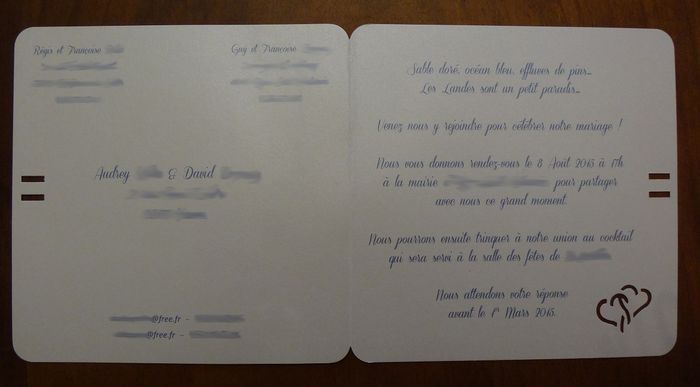 Régis et Françoise
Guy et Françoise
Audrey & David
@free.fr -
@free.fr -
Sable doré, océan bleu, effluves de pins...
Les Landes sont un petit paradis...
Venez nous y rejoindre pour célébrer notre mariage !
Nous vous donnons rendez-vous le 8 Août 2015 à 17h
à la mairie pour partager
avec nous ce grand moment.
Nous pourrons ensuite trinquer à notre union au cocktail
qui sera servi à la salle des fêtes de
Nous attendons votre réponse
avant le 1er Mars 2015.